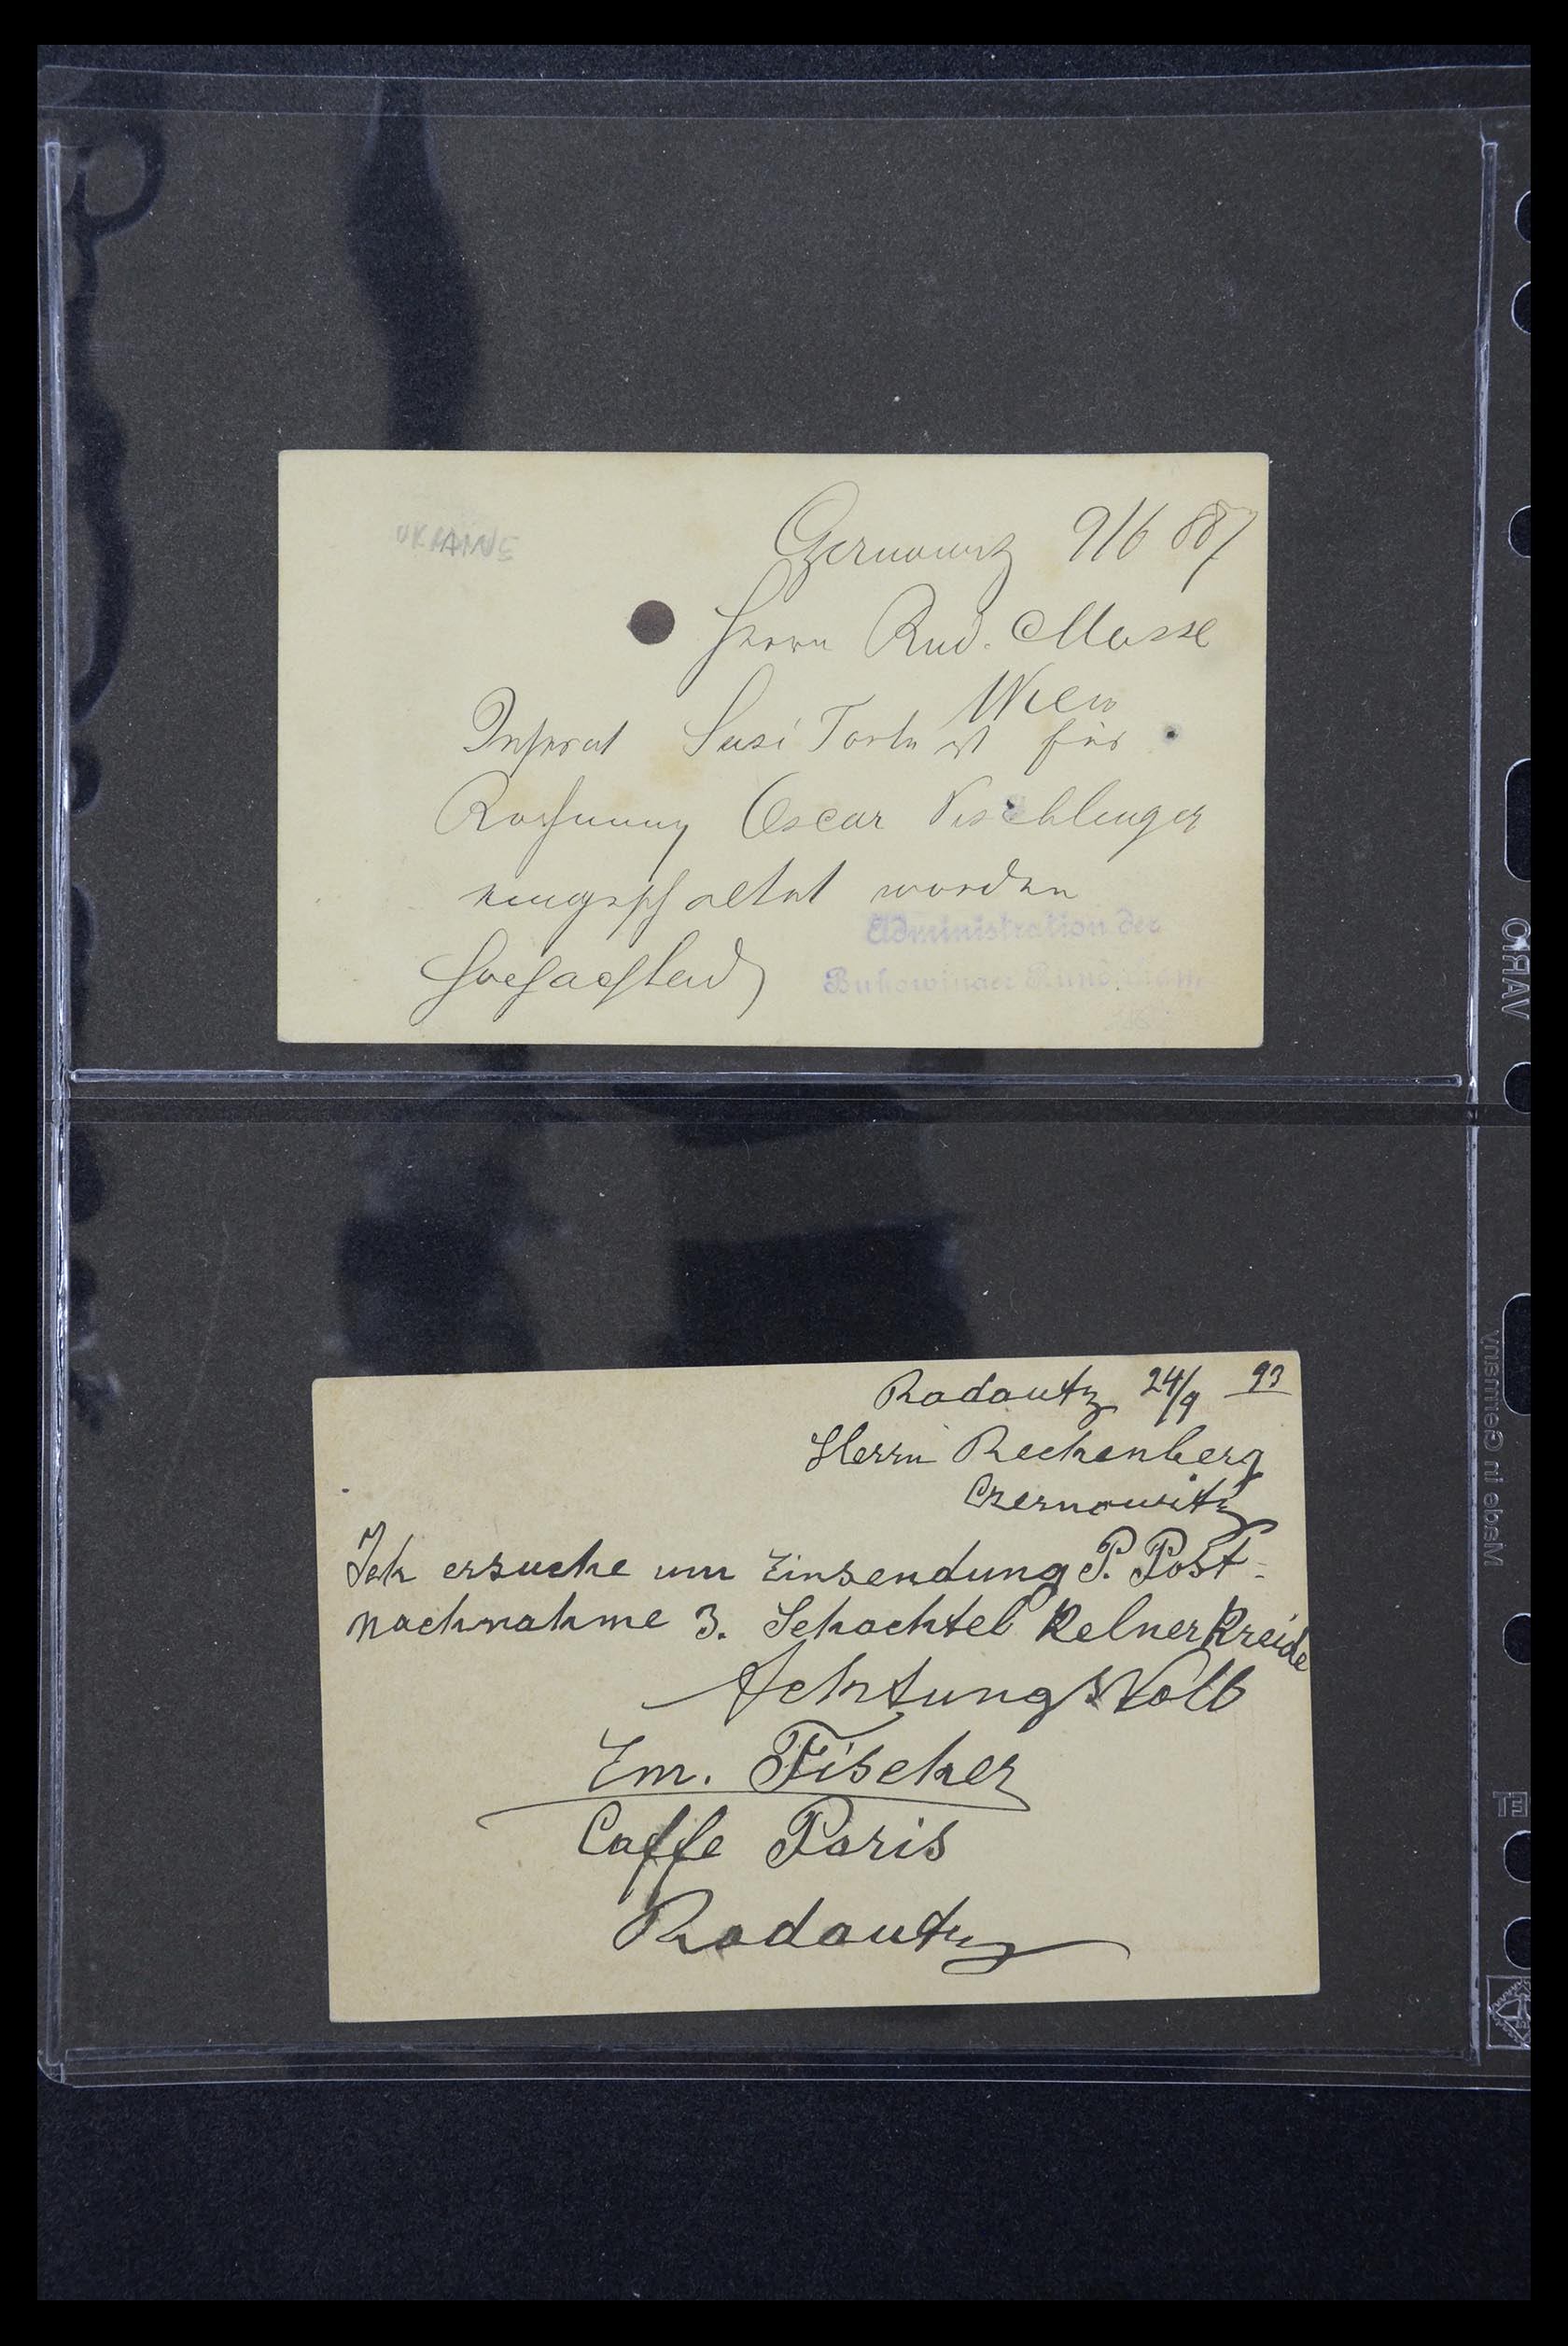 UKRAINE
Czernowitz 9/6 887
Herrn Rud. Mosse
Wien
Inserat Susi Torte ist für
Rechnung Oscar
eingeschaltet worden
Hochachtend
Administration der
Bukowinaer Rundschau
Radautz 24/9 93
Herrn Rechenberg
Czernowitz
Ich ersuche um Einsendung P. Post-
nachnahme 3. Schachtel KelnerKreide
AchtungsVoll
Em. Fischer
Caffe Paris
Radautz
VARIO
Made in Germany